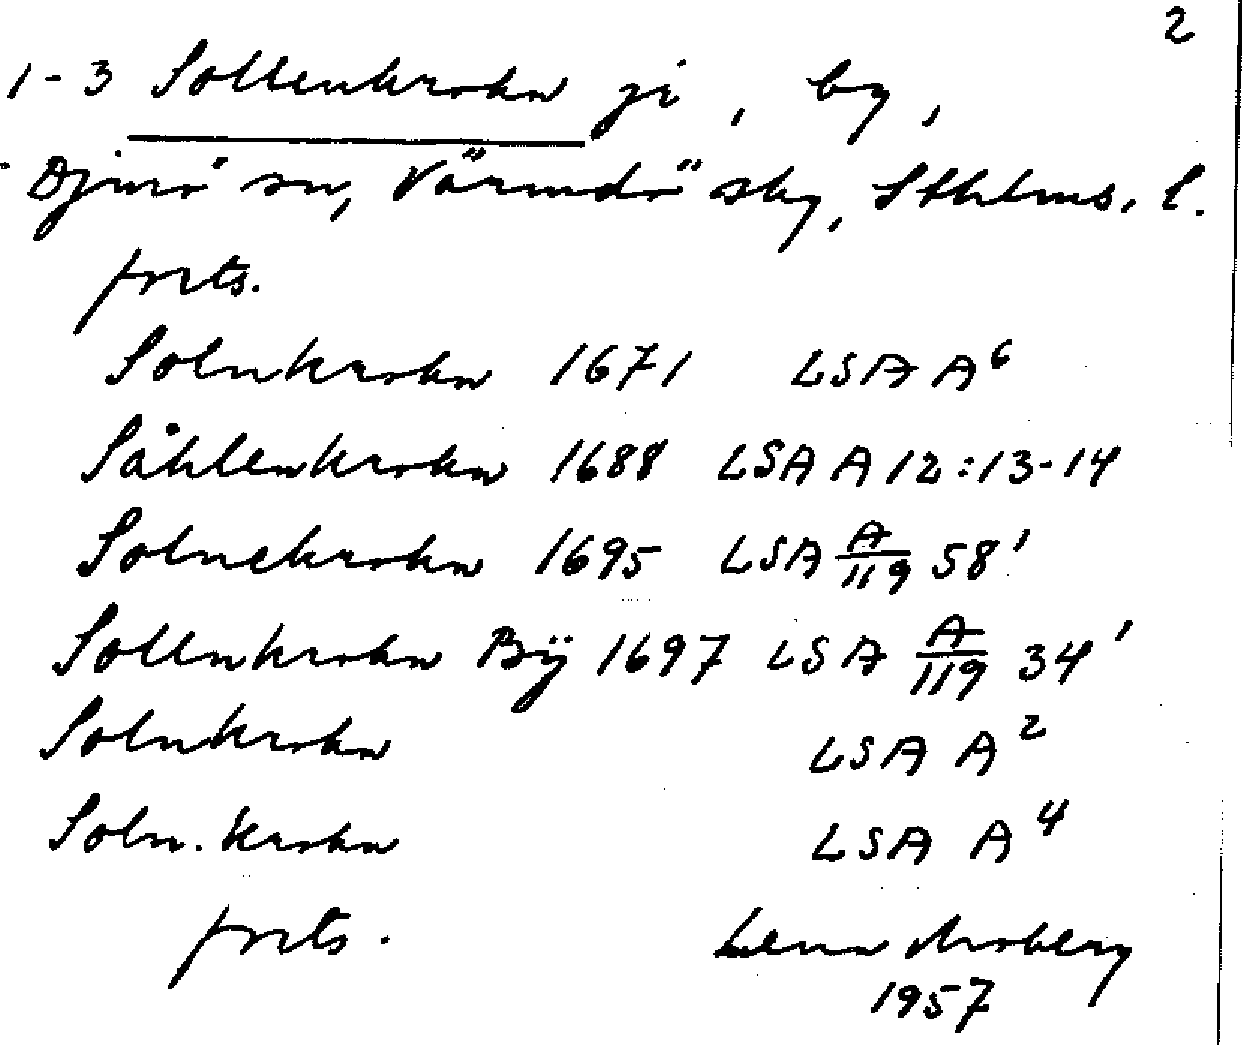 2
1-3 Sollenkrokn ji, by,
Djurö sn, Värmdö sky, Sthlms. l.
forts.
Solnkrokn 1671 LSA A⁶
Såhlenkrokn 1688 LSA A12:13-14
Solnekrokn 1695 LSA A/119 58'
Sollnkrokn Bÿ 1697 LSA A/119 34'
Solnkrokn LSA A²
Soln. krokn LSA A⁴
forts. Lena Moberg
1957